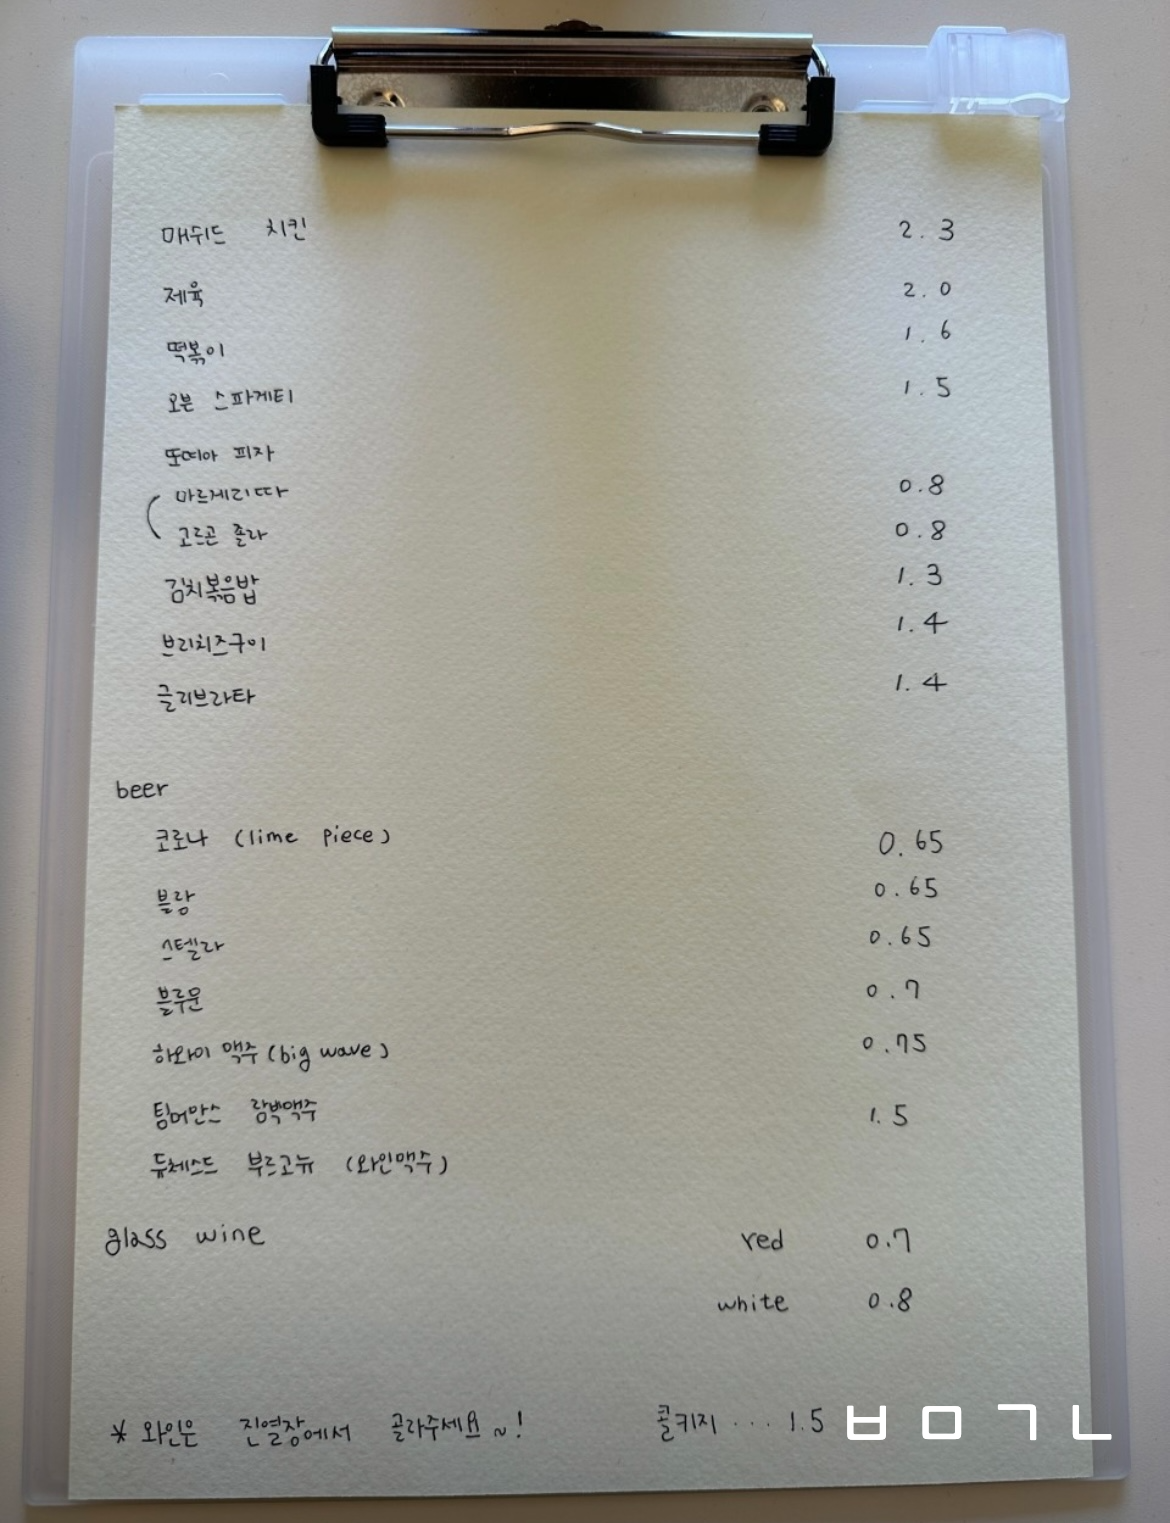 매쉬드 치킨 2.3
제육 2.0
떡볶이 1.6
오븐 스파게티 1.5
또띠아 피자
마르게리따 0.8
고르곤 졸라 0.8
김치볶음밥 1.3
브리치즈구이 1.4
귤리브라타 1.4
beer
코로나 (lime piece) 0.65
블랑 0.65
스텔라 0.65
블루문 0.7
하와이 맥주 (big wave) 0.75
팀머만스 람빅맥주 1.5
듀체스드 부르고뉴 (와인맥주)
glass wine red 0.7
white 0.8
* 와인은 진열장에서 골라주세요~! 콜키지 ... 1.5
ㅂㅁㄱㄴ